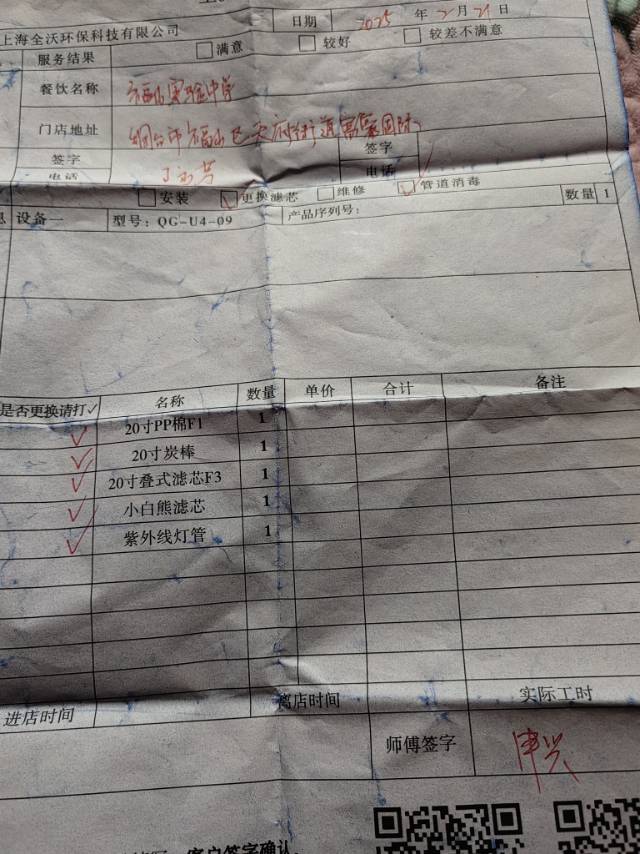 日期 2025 年 2 月 21 日
上海全沃环保科技有限公司
服务结果 满意 较好 较差不满意
餐饮名称 福山实验中学
门店地址 烟台市福山区
签字 签字
电话 电话
安装 更换滤芯 维修 管道消毒
设备一 型号：QG-U4-09 产品序列号： 数量 1
是否更换请打✓ 名称 数量 单价 合计 备注
✓ 20寸PP棉F1 1
✓ 20寸炭棒 1
✓ 20寸叠式滤芯F3 1
✓ 小白熊滤芯 1
✓ 紫外线灯管 1
进店时间 离店时间 实际工时
师傅签字
客户签字确认